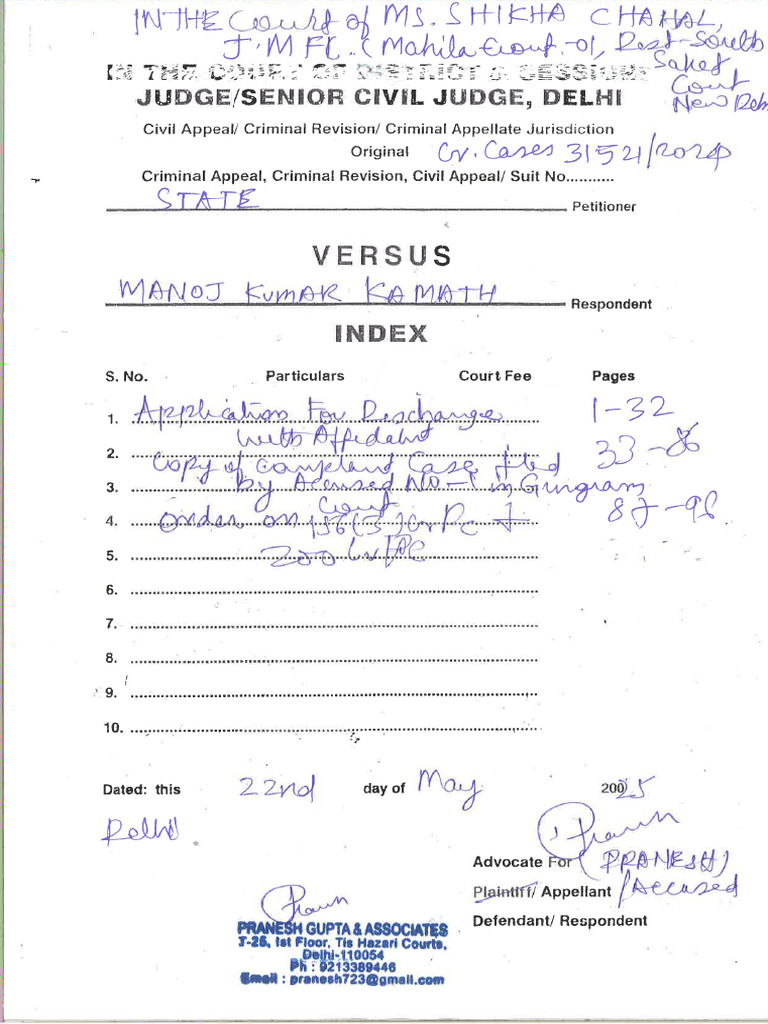 IN THE Court of MS. SHIKHA CHAHAL,
J.M FC. (Mahila Court-01, Dist-South
Saket
Court
New Delh
IN THE COURT OF DISTRICT & SESSIONS
JUDGE/SENIOR CIVIL JUDGE, DELHI
Civil Appeal/ Criminal Revision/ Criminal Appellate Jurisdiction
Original Cr. Cases 31521/2024
Criminal Appeal, Criminal Revision, Civil Appeal/ Suit No...........
STATE Petitioner
VERSUS
MANOJ KUMAR KAMATH Respondent
INDEX
S. No. Particulars Court Fee Pages
1. Application For Discharge 1-32
with Affidavit
2. Copy of complaint Case filed 33-86
3. by Accused No-1 in Gurugram
Court
4. order on 156(3) Cr Pc + 87-98
5. 200 Cr/PC
6.
7.
8.
9.
10.
Dated: this 22nd day of May 2025
Delhi
Advocate For (PRANESH)
Plaintiff/ Appellant /Accused
Defendant/ Respondent
PRANESH GUPTA & ASSOCIATES
T-25, Ist Floor, Tis Hazari Courts,
Delhi-110054
Ph : 9213389446
Email : pranesh723@gmail.com